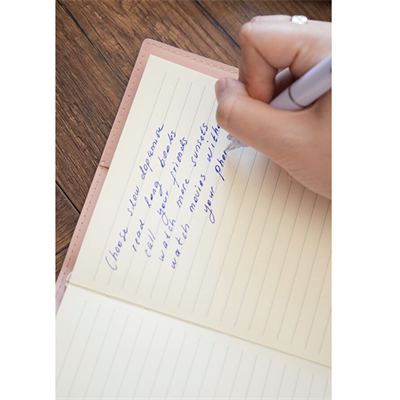 Choose slow dopamine
read long books
call your friends
watch more sunsets
watch movies witho
your phon